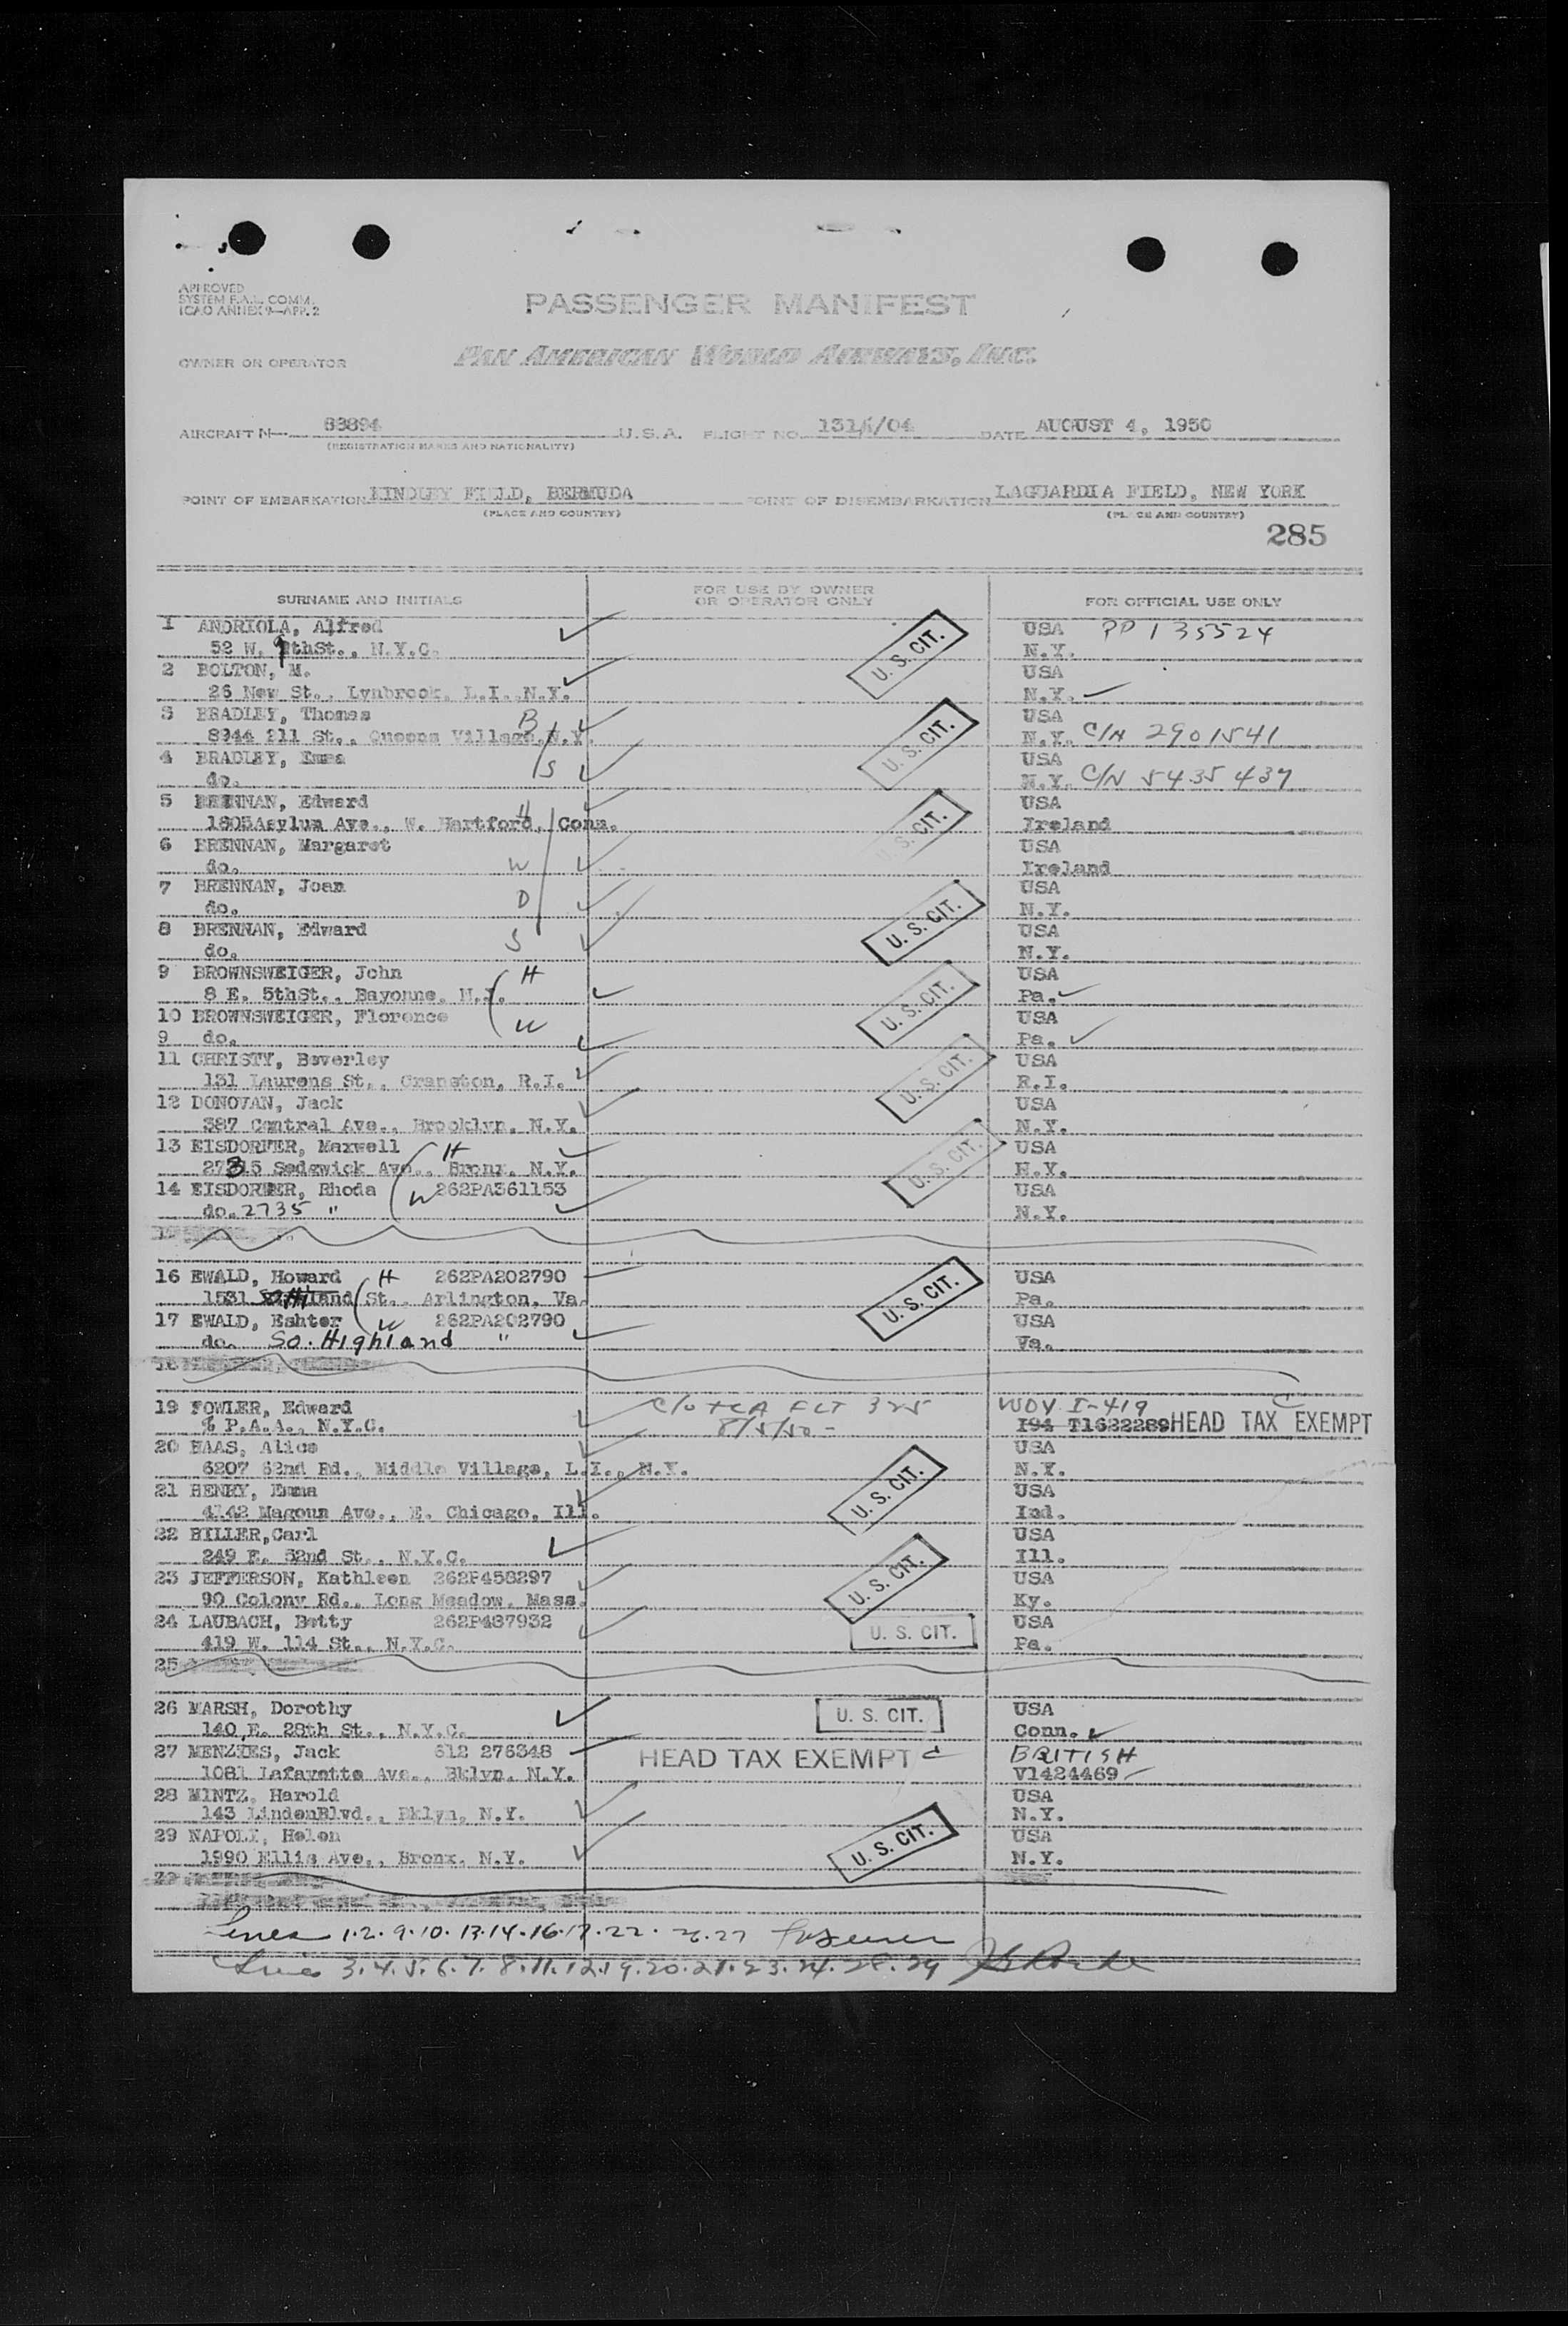 APPROVED
SYSTEM F.A.L. COMM.
ICAO ANNEX 9—APP. 2
PASSENGER MANIFEST
OWNER OR OPERATOR PAN AMERICAN WORLD AIRWAYS, INC.
AIRCRAFT N— 88894 U.S.A. FLIGHT NO. 131/04 DATE AUGUST 4, 1950
(REGISTRATION MARKS AND NATIONALITY)
POINT OF EMBARKATION KINDLEY FIELD, BERMUDA POINT OF DISEMBARKATION LAGUARDIA FIELD, NEW YORK
(PLACE AND COUNTRY) (PLACE AND COUNTRY)
285
SURNAME AND INITIALS FOR USE BY OWNER OR OPERATOR ONLY FOR OFFICIAL USE ONLY
1 ANDRIOLA, Alfred USA PP 135524
52 W. 9thSt., N.Y.C. U. S. CIT. N.Y.
2 BOLTON, M. USA
26 New St., Lynbrook, L.I.,N.Y. N.Y.
3 BRADLEY, Thomas B USA
8944 211 St., Queens Village,N.Y. U. S. CIT. N.Y. C/N 2901541
4 BRADLEY, Emma USA
do. S N.Y. C/N 5435437
5 BRENNAN, Edward H USA
1805Asylum Ave., W. Hartford, Conn. U. S. CIT. Ireland
6 BRENNAN, Margaret USA
do. W Ireland
7 BRENNAN, Joan USA
do. D N.Y.
8 BRENNAN, Edward U. S. CIT. USA
do. S N.Y.
9 BROWNSWEIGER, John H USA
8 E. 5thSt., Bayonne, N.J. U. S. CIT. Pa.
10 BROWNSWEIGER, Florence W USA
9 do. Pa.
11 CHRISTY, Beverley USA
131 Laurens St., Cranston, R.I. U. S. CIT. R.I.
12 DONOVAN, Jack USA
387 Central Ave., Brooklyn, N.Y. N.Y.
13 EISDORFER, Maxwell H USA
2735 Sedgwick Ave., Bronx, N.Y. U. S. CIT. N.Y.
14 EISDORFER, Rhoda W 262PA361153 USA
do. 2735 " N.Y.
16 EWALD, Howard H 262PA202790 USA
1531 St., Arlington, Va. U. S. CIT. Pa.
17 EWALD, Eshter W 262PA202790 USA
do. So. Highland " Va.
19 FOWLER, Edward C/o TCA FLT 325 WOV I-419
% P.A.A., N.Y.C. 8/5/50 - I94 T1622289 HEAD TAX EXEMPT C
20 HAAS, Alice USA
6207 62nd Rd., Middle Village, L.I., N.Y. U. S. CIT. N.Y.
21 HENRY, Emma USA
4142 Magoun Ave., E. Chicago, Ill. Ind.
22 HILLER,Carl USA
249 E. 52nd St., N.Y.C. Ill.
23 JEFFERSON, Kathleen 262P458297 U. S. CIT. USA
90 Colony Rd., Long Meadow, Mass. Ky.
24 LAUBACH, Betty 262P487932 U. S. CIT. USA
419 W. 114 St., N.Y.C. Pa.
25
26 MARSH, Dorothy U. S. CIT. USA
140 E. 28th St., N.Y.C. Conn.
27 MENZIES, Jack 612 276348 HEAD TAX EXEMPT C BRITISH
1081 Lafayette Ave., Bklyn, N.Y. V1424469
28 MINTZ, Harold USA
143 LindenBlvd., Bklyn, N.Y. N.Y.
29 NAPOLI, Helen U. S. CIT. USA
1990 Ellis Ave., Bronx, N.Y. N.Y.
Lines 1.2.9.10.13.14.16.17.22.26.27
Lines 3.4.5.6.7.8.11.12.19.20.21.23.24.28.29